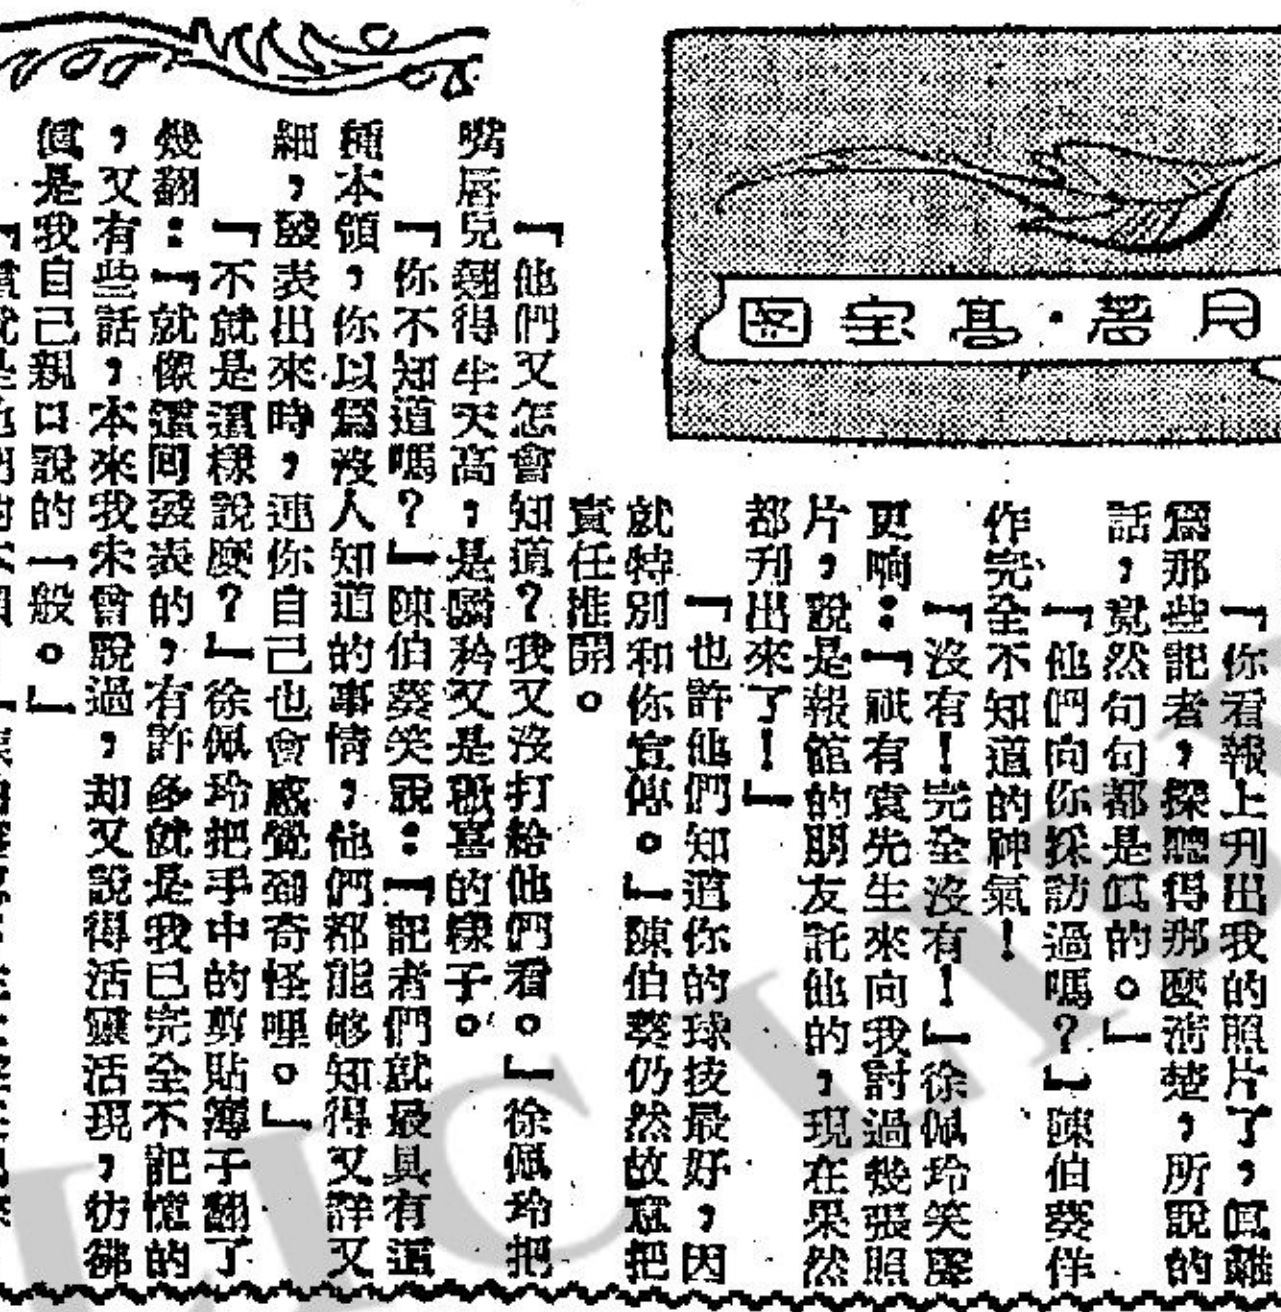 月·著高宝图
「你看報上刋出我的照片了，眞難
爲那些記者，探聽得那麼淸楚，所說的
話，竟然句句都是眞的。」
「他們向你採訪過嗎？」陳伯葵佯
作完全不知道的神氣！
「沒有！完全沒有！」徐佩玲笑聲
更响：「祇有袁先生來向我討過幾張照
片，說是報館的朋友託他的，現在果然
都刋出來了！」
「也許他們知道你的球技最好，因
就特別和你宣傳。」陳伯葵仍然故意把
責任推開。
「他們又怎會知道？我又沒打給他們看。」徐佩玲把
嘴唇兒翹得半天高，是驕矜又是歡喜的樣子。
「你不知道嗎？」陳伯葵笑說：「記者們就最具有這
種本領，你以爲沒人知道的事情，他們都能够知得又詳又
細，發表出來時，連你自己也會感覺到奇怪哩。」
「不就是這樣說麼？」徐佩玲把手中的剪貼簿子翻了
幾翻：「就像這回發表的，有許多就是我已完全不記憶的
，又有些話，本來我未曾說過，却又說得活靈活現，彷彿
眞是我自己親口說的一般。」